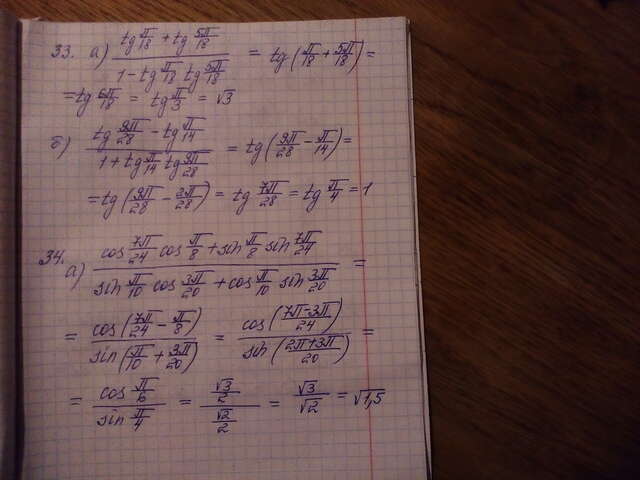 33. а) (tg π/18 + tg 5π/18)/(1 - tg π/18 tg 5π/18) = tg(π/18 + 5π/18) =
= tg 6π/18 = tg π/3 = √3
б) (tg 9π/28 - tg π/14)/(1 + tg π/14 tg 9π/28) = tg(9π/28 - π/14) =
= tg(9π/28 - 2π/28) = tg 7π/28 = tg π/4 = 1
34. а) (cos 7π/24 cos π/8 + sin π/8 sin 7π/24)/(sin π/10 cos 3π/20 + cos π/10 sin 3π/20) =
= cos(7π/24 - π/8)/sin(π/10 + 3π/20) = cos((7π-3π)/24)/sin((2π+3π)/20) =
= (cos π/6)/(sin π/4) = (√3/2)/(√2/2) = √3/√2 = √1,5